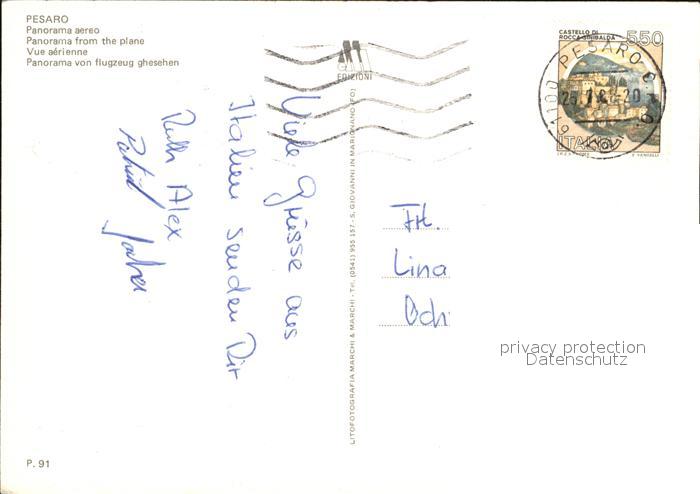 PESARO
Panorama aereo
Panorama from the plane
Vue aérienne
Panorama von flugzeug ghesehen
EDIZIONI
CASTELLO DI
ROCCA SINIBALDA
550
61100 PESARO
ITALIA
Viele Grüsse aus
Italien senden Dir
Ruth Alex
LITOFOTOGRAFIA MARCHI & MARCHI - Tel. (0541) 955 157 - S. GIOVANNI IN MARIGNANO (FO)
Frl.
Lina
Och
privacy protection
Datenschutz
P. 91